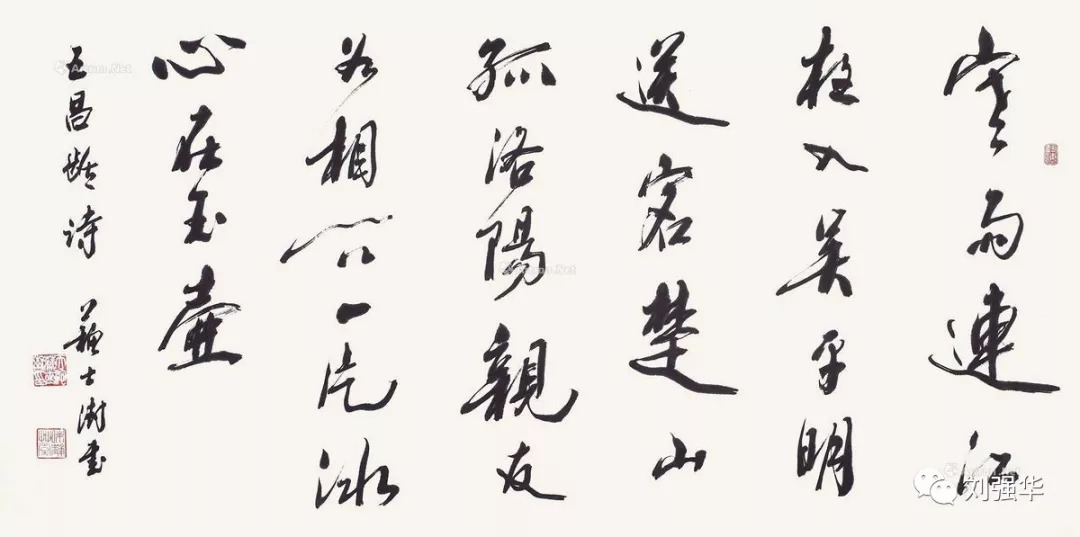 寒雨連江
夜入吳平明
送客楚山
孤洛陽親友
如相問一片冰
心在玉壺
王昌齡詩 蘇士澍書
刘强华